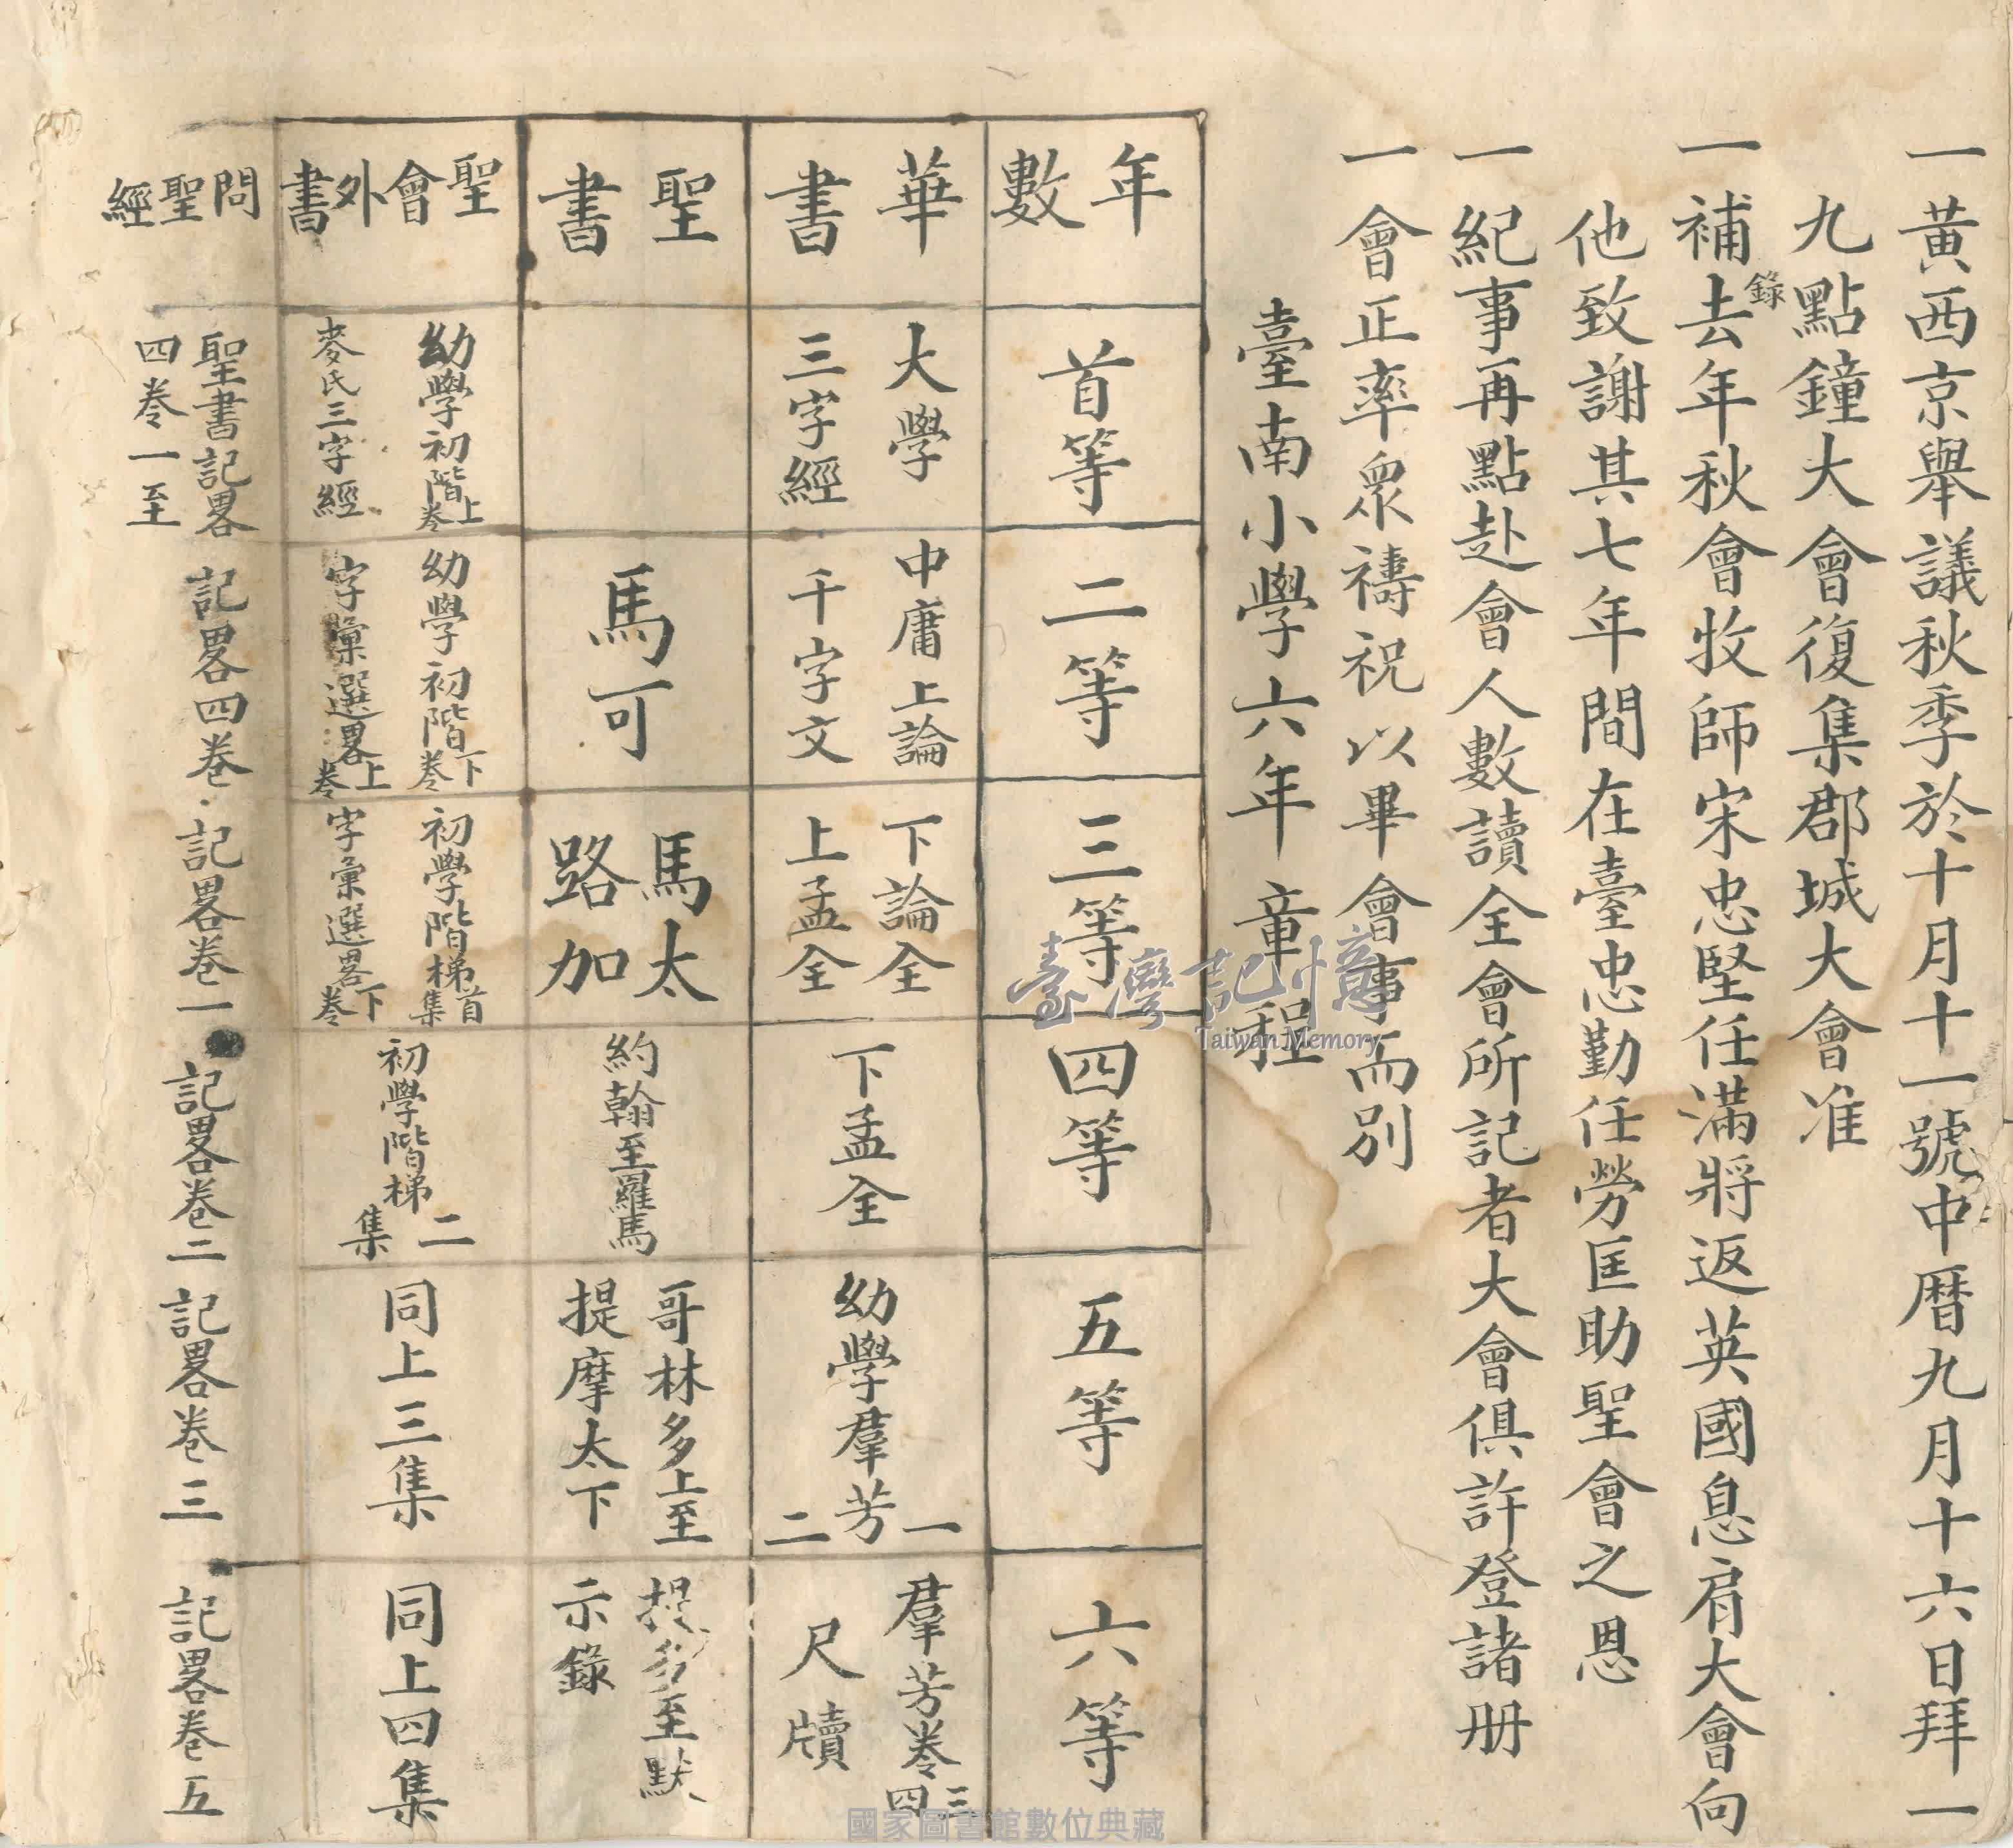 一黃西京舉議秋季於十月十一號中曆九月十六日拜一
九點鐘大會復集郡城大會准
一補錄去年秋會牧師宋忠堅任滿將返英國息肩大會向
他致謝其七年間在臺忠勤任勞匡助聖會之恩
一紀事再點赴會人數讀全會所記者大會俱許登諸冊
一會正率眾禱祝以畢會事而別
臺南小學六年章程
年數
首等
二等
三等
四等
五等
六等
華書
大學
三字經
中庸上論
千字文
下論全
上孟全
下孟全
幼學羣芳一二
羣芳卷三四
尺牘
聖書
馬可
馬太
路加
約翰至羅馬
哥林多上至
提摩太下
提多至默
示錄
聖會外書
幼學初階上卷
麥氏三字經
幼學初階下卷
字彙選畧上卷
初學階梯首集
字彙選畧下卷
初學階梯二集
同上三集
同上四集
問聖經
聖書記畧
四卷一至
記畧四卷
記畧卷一
記畧卷二
記畧卷三
記畧卷五
臺灣記憶
Taiwan Memory
國家圖書館數位典藏